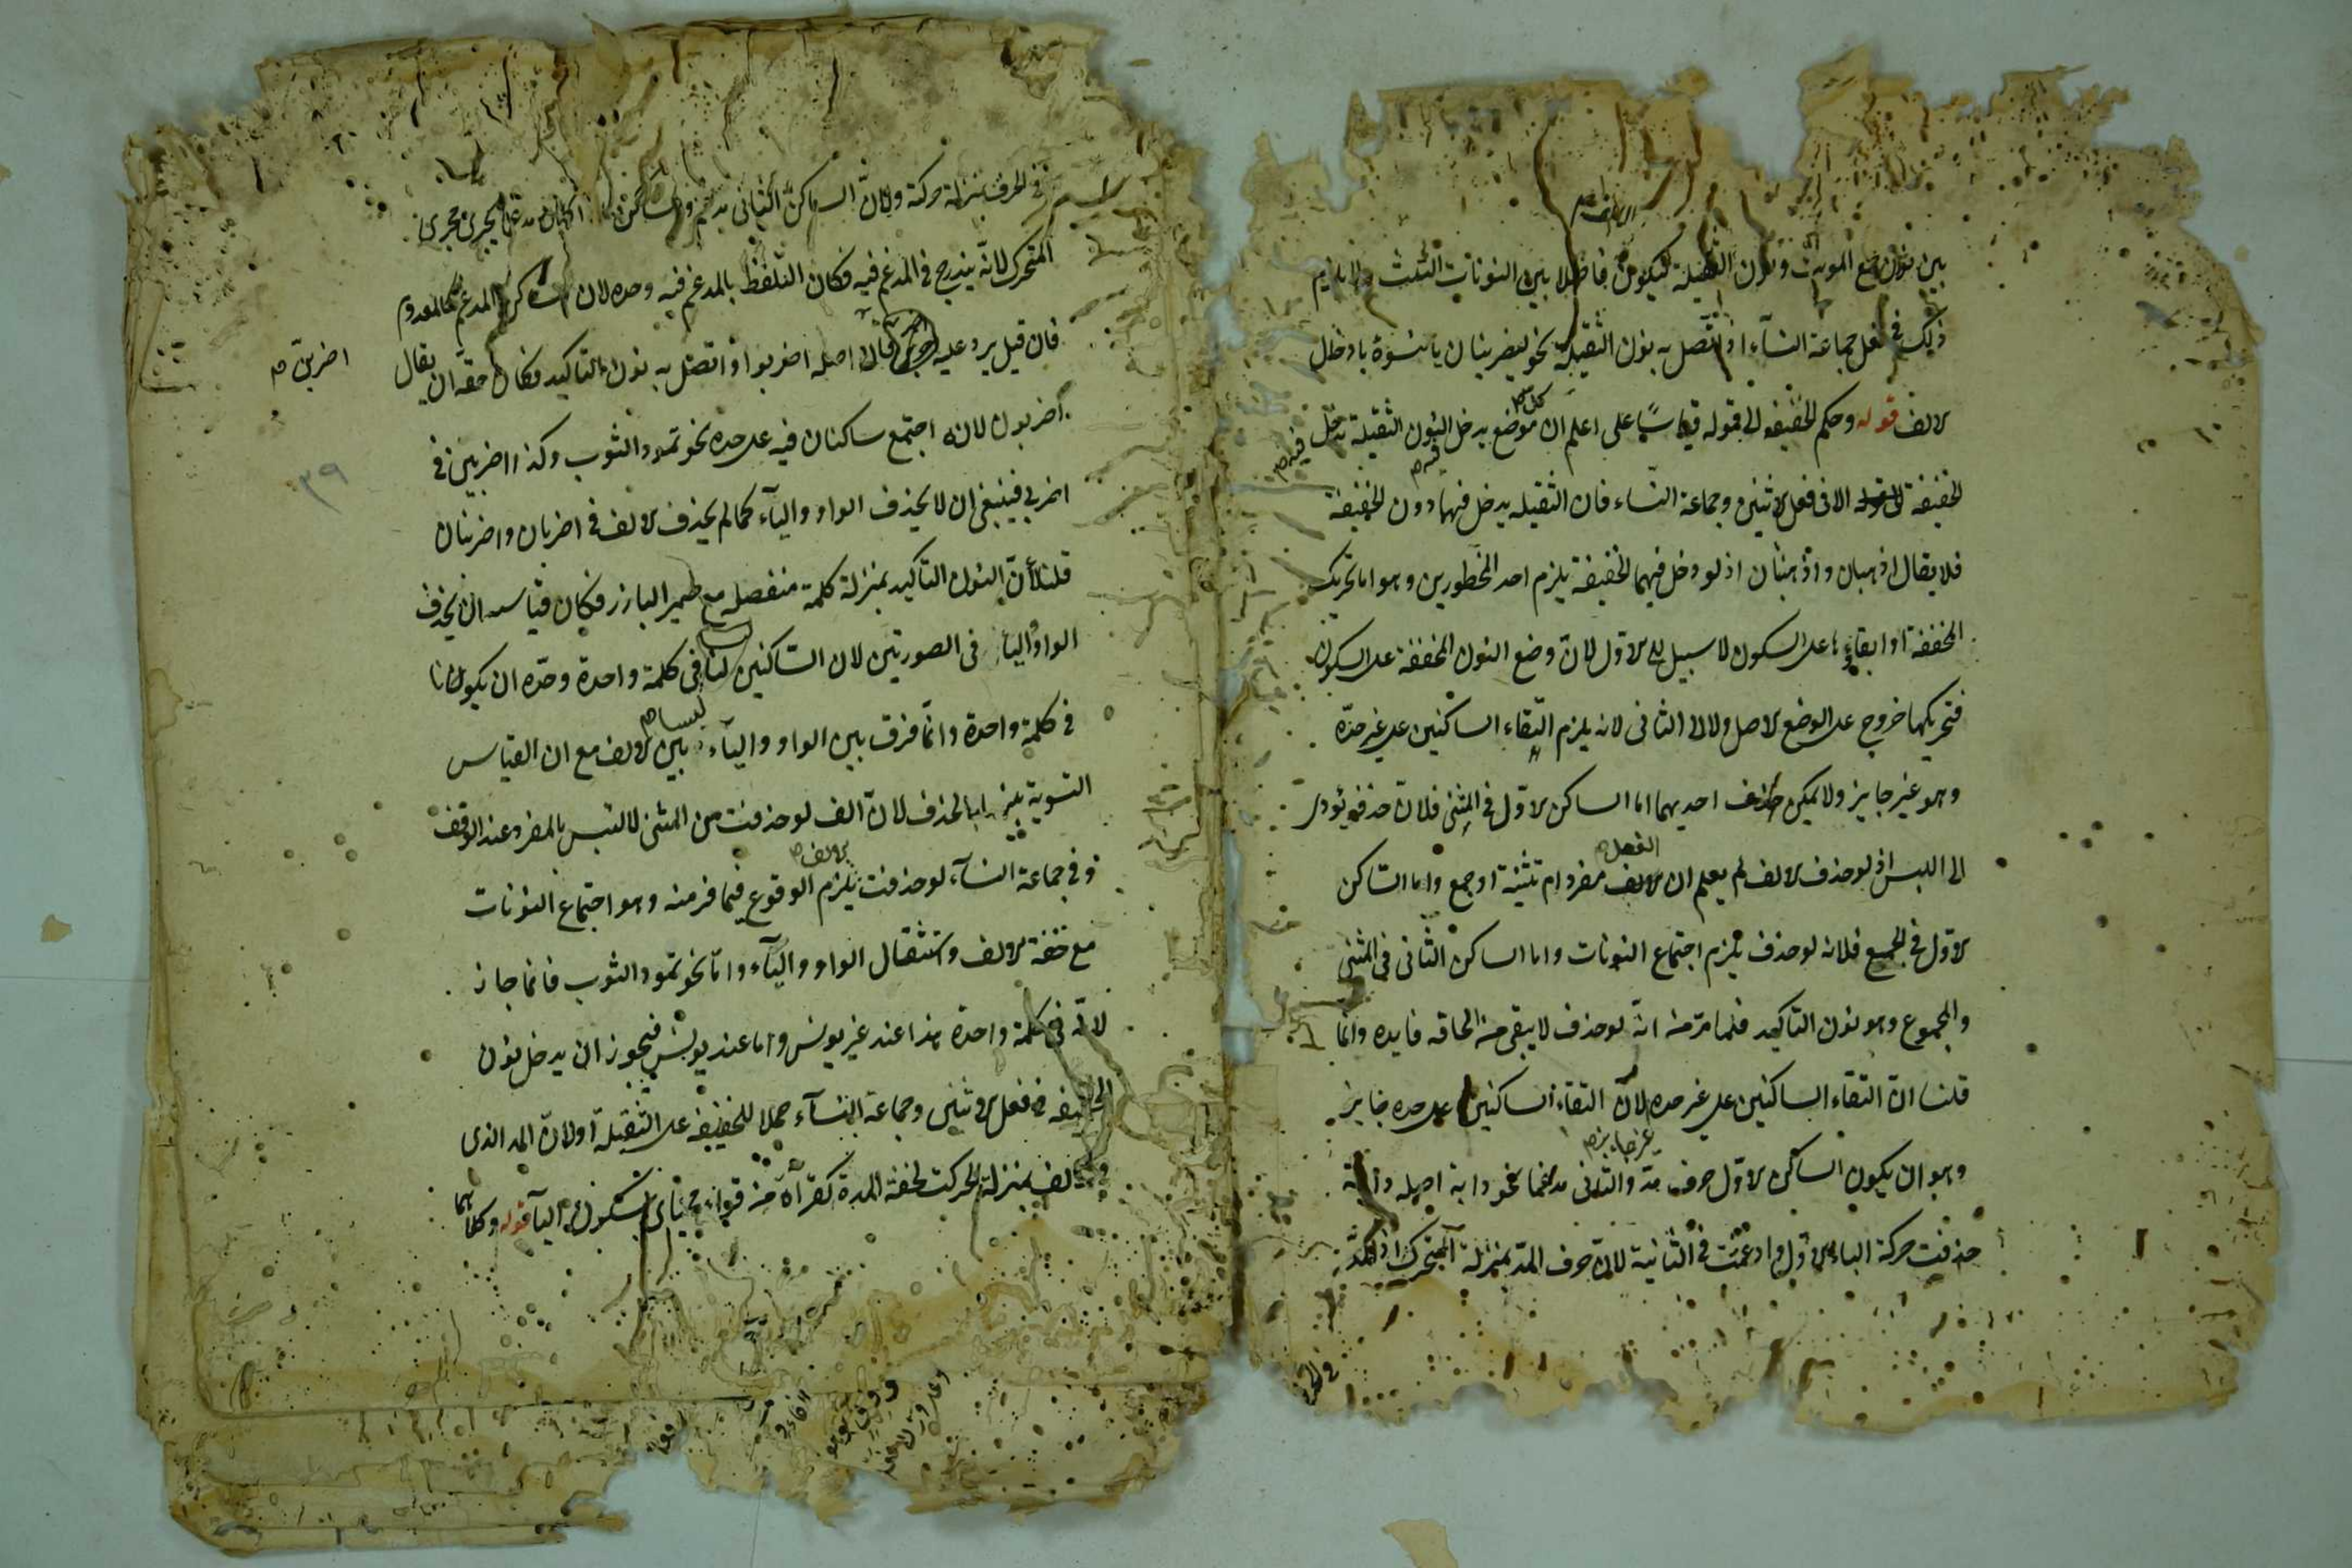 بين نون جمع المونث ونون الثقيلة ليكون فاصلا بين النونات الثلث ولا يلزم
ذلك في فعل جماعة النسآء اذا اتصل به نون الثقيلة نحو ليضربنان يا نسوة بادخال
الالف قوله وحكم الخفيفة الى قوله قياسًا على اعلم ان كل موضع يدخل النون الثقيلة يدخل فيه
الخفيفة الا في فعل الاثنين وجماعة النساء فان الثقيله يدخل فيهما دون الخفيفة
فلا يقال اذهبان واذهبنان اذ لو دخل فيهما الخفيفة يلزم احد المحظورين وهو اما تحريك
المخففة او ابقاؤها على السكون لا سبيل الى الاول لان وضع النون المخففة على السكون
فتحريكها خروج عن الوضع الاصل ولا الى الثاني لانه يلزم التقاء الساكنين على غير حدّه
وهو غير جايز ولا يمكن حذف احديهما اما الساكن الاول في المثنى فلان حذفه يؤدى
الى اللبس اذ لو حذف الالف لم يعلم ان الفعل مفرد ام تثنية او جمع واما الساكن
الاول في الجمع فلانه لو حذف يلزم اجتماع النونات واما الساكن الثاني في المثنى
والمجموع وهو نون التاكيد فلما مرّ منه انه لو حذف لا يبقى من الحاقه فايده وانما
قلنا ان التقاء الساكنين على غير حده غير جايز لان التقاء الساكنين على حده جايز
وهو ان يكون الساكن الاول حرف مد والثاني مدغما نحو دابة اصله داببة
حذفت حركة الباء الاول وادغمت في الثانية لان حرف المد بمنزلة المتحرك اذ المد
في الحرف بمنزلة حركة ولان الساكن الثاني مدغم والساكن اذا كان مدغما يجرى مجرى
المتحرك لانه يندرج في المدغم فيه فكان التلفظ بالمدغم فيه وحده لان الساكن المدغم كالمعدوم
فان قيل يرد عليه اضربن فان اصله اضربوا اذا اتصل به نون التاكيد فكان حقه ان يقال
اضربون لانه اجتمع ساكنان فيه على حده نحو تمود الثوب وكذا اضربين في
اضربي فينبغي ان لا يحذف الواو والياء كما لم يحذف الالف في اضربان واضربنان
قلنا لأن النون التاكيد بمنزلة كلمة منفصله مع ضمير البارز فكان قياسه ان يحذف
الواو والياء في الصورتين لان الساكنين ليسا في كلمة واحدة وحدّه ان يكونا
في كلمة واحدة وانما فرق بين الواو والياء بين الالف مع ان القياس
التسوية بينها بالحذف لان الف لو حذفت من المثنى لالتبس بالمفرد عند الوقف
وفي جماعة النسآء لو حذفت الالف يلزم الوقوع فيما فر منه وهو اجتماع النونات
مع خفة الالف واستثقال الواو والياء واما نحو تمود الثوب فانما جاز
لانه في كلمة واحدة هذا عند غير يونس واما عند يونس فيجوز ان يدخل نون
الخفيفه في فعل الاثنين وجماعة النسآء حملا للخفيفة على الثقيلة او لان المد الذى
في الالف بمنزلة الحركت لخفة المدة كقرآة من قراء محياى بسكون اليآ قوله وكلاهما
اضربن
٣٩